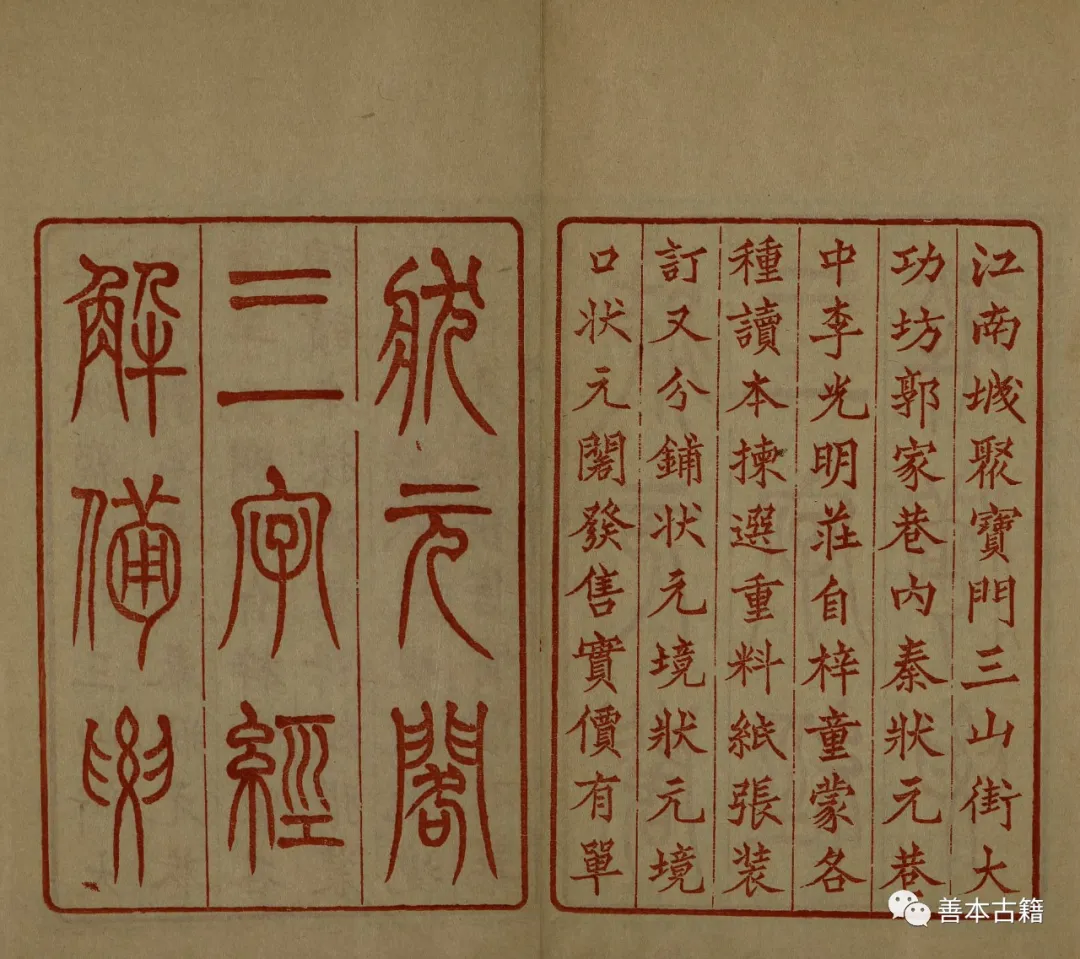 江南城聚寶門三山街大
功坊郭家巷內秦狀元巷
中李光明莊自梓童蒙各
種讀本揀選重料紙張裝
訂又分鋪狀元境狀元境
口狀元閣發售實價有單
狀元閣
三字經
解備要
善本古籍